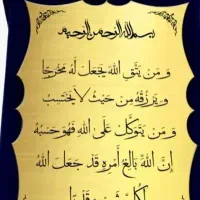 بسم الله الرحمن الرحيم
وَمَن يَتَّقِ اللَّهَ يَجْعَل لَّهُ مَخْرَجًا
وَيَرْزُقْهُ مِنْ حَيْثُ لَا يَحْتَسِبُ
وَمَن يَتَوَكَّلْ عَلَى اللَّهِ فَهُوَ حَسْبُهُ
إِنَّ اللَّهَ بَالِغُ أَمْرِهِ قَدْ جَعَلَ اللَّهُ
لِكُلِّ شَيْءٍ قَدْرًا